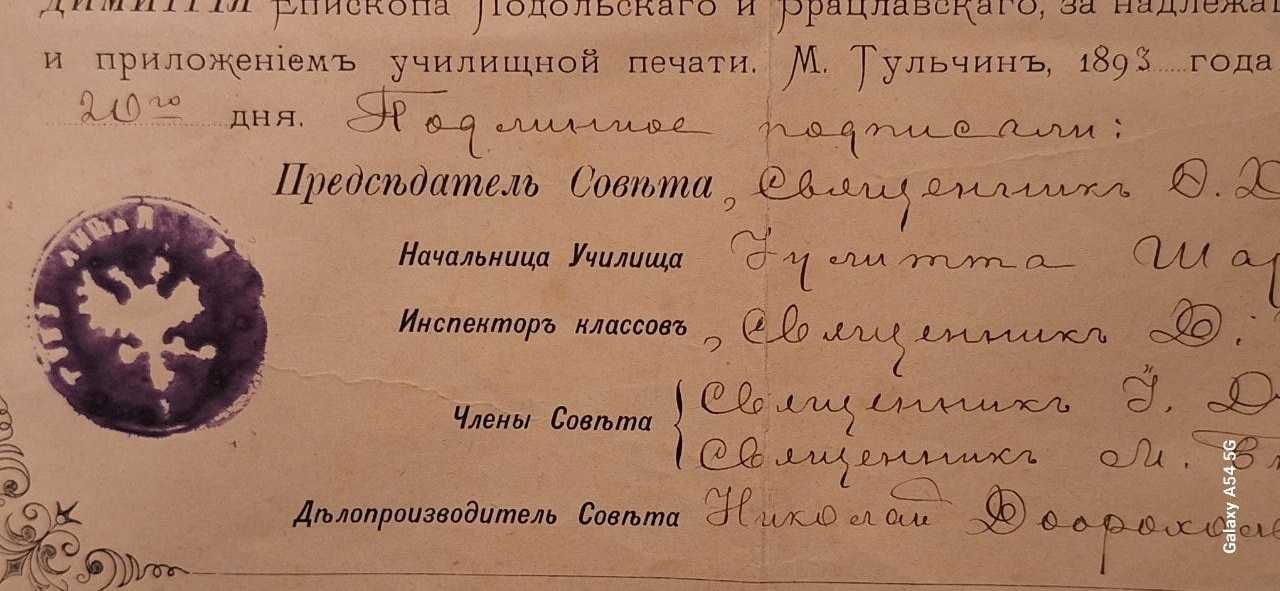 ДИМИТРІЯ Епископа Подольскаго и Брацлавскаго, за надлежащ
и приложеніемъ училищной печати. М. Тульчинъ, 1893 года
20го дня. Подлинное подписали:
Предсѣдатель Совѣта, Священникъ Ѳ.
Начальница Училища Іулитта Шар
Инспекторъ классовъ, Священникъ Ѳ.
Члены Совѣта Священникъ І. Д
Священникъ М.
Дѣлопроизводитель Совѣта Николай Доброхо
Galaxy A54 5G